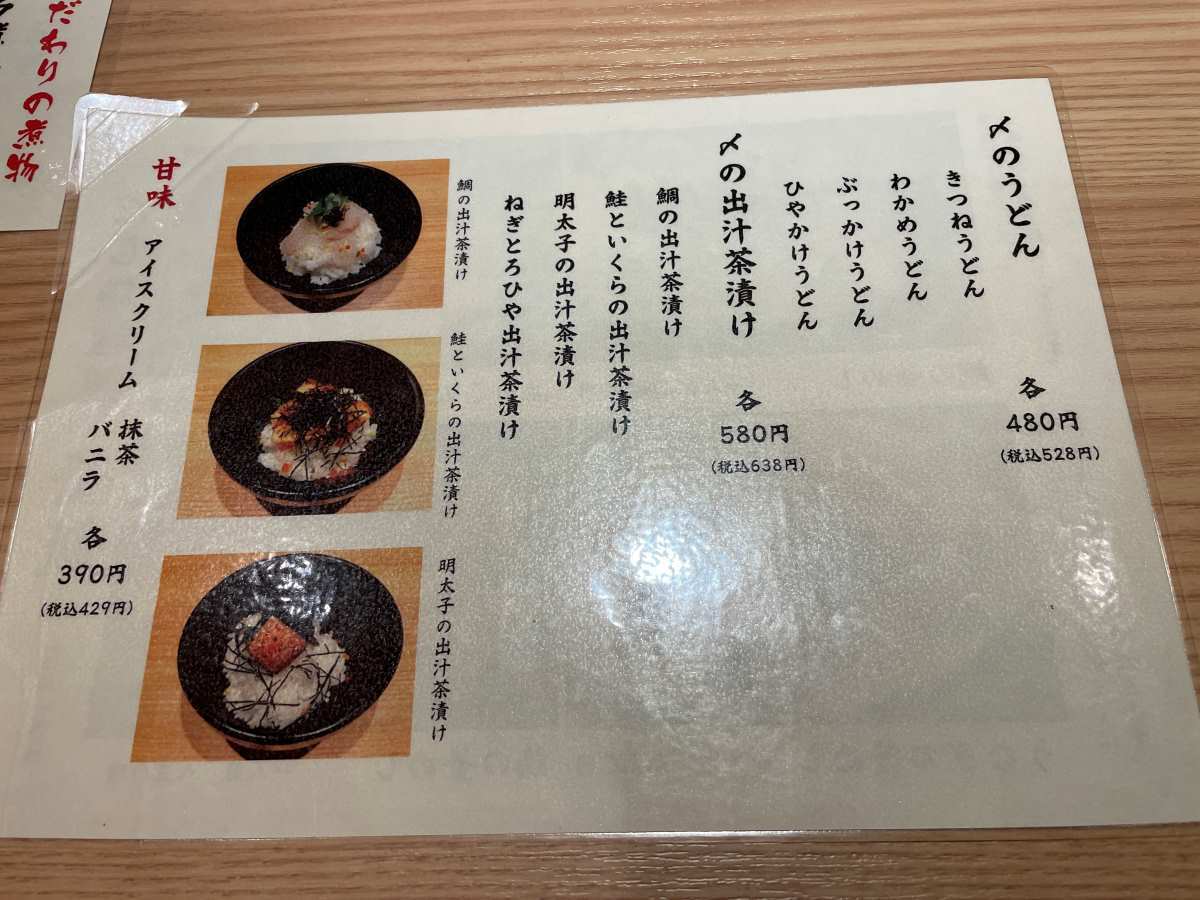 〆のうどん
各
480円
(税込528円)
きつねうどん
わかめうどん
ぶっかけうどん
ひやかけうどん
〆の出汁茶漬け
各
580円
(税込638円)
鯛の出汁茶漬け
鮭といくらの出汁茶漬け
明太子の出汁茶漬け
ねぎとろひや出汁茶漬け
鯛の出汁茶漬け
鮭といくらの出汁茶漬け
明太子の出汁茶漬け
甘味
アイスクリーム
抹茶
バニラ
各
390円
(税込429円)
だわりの煮物